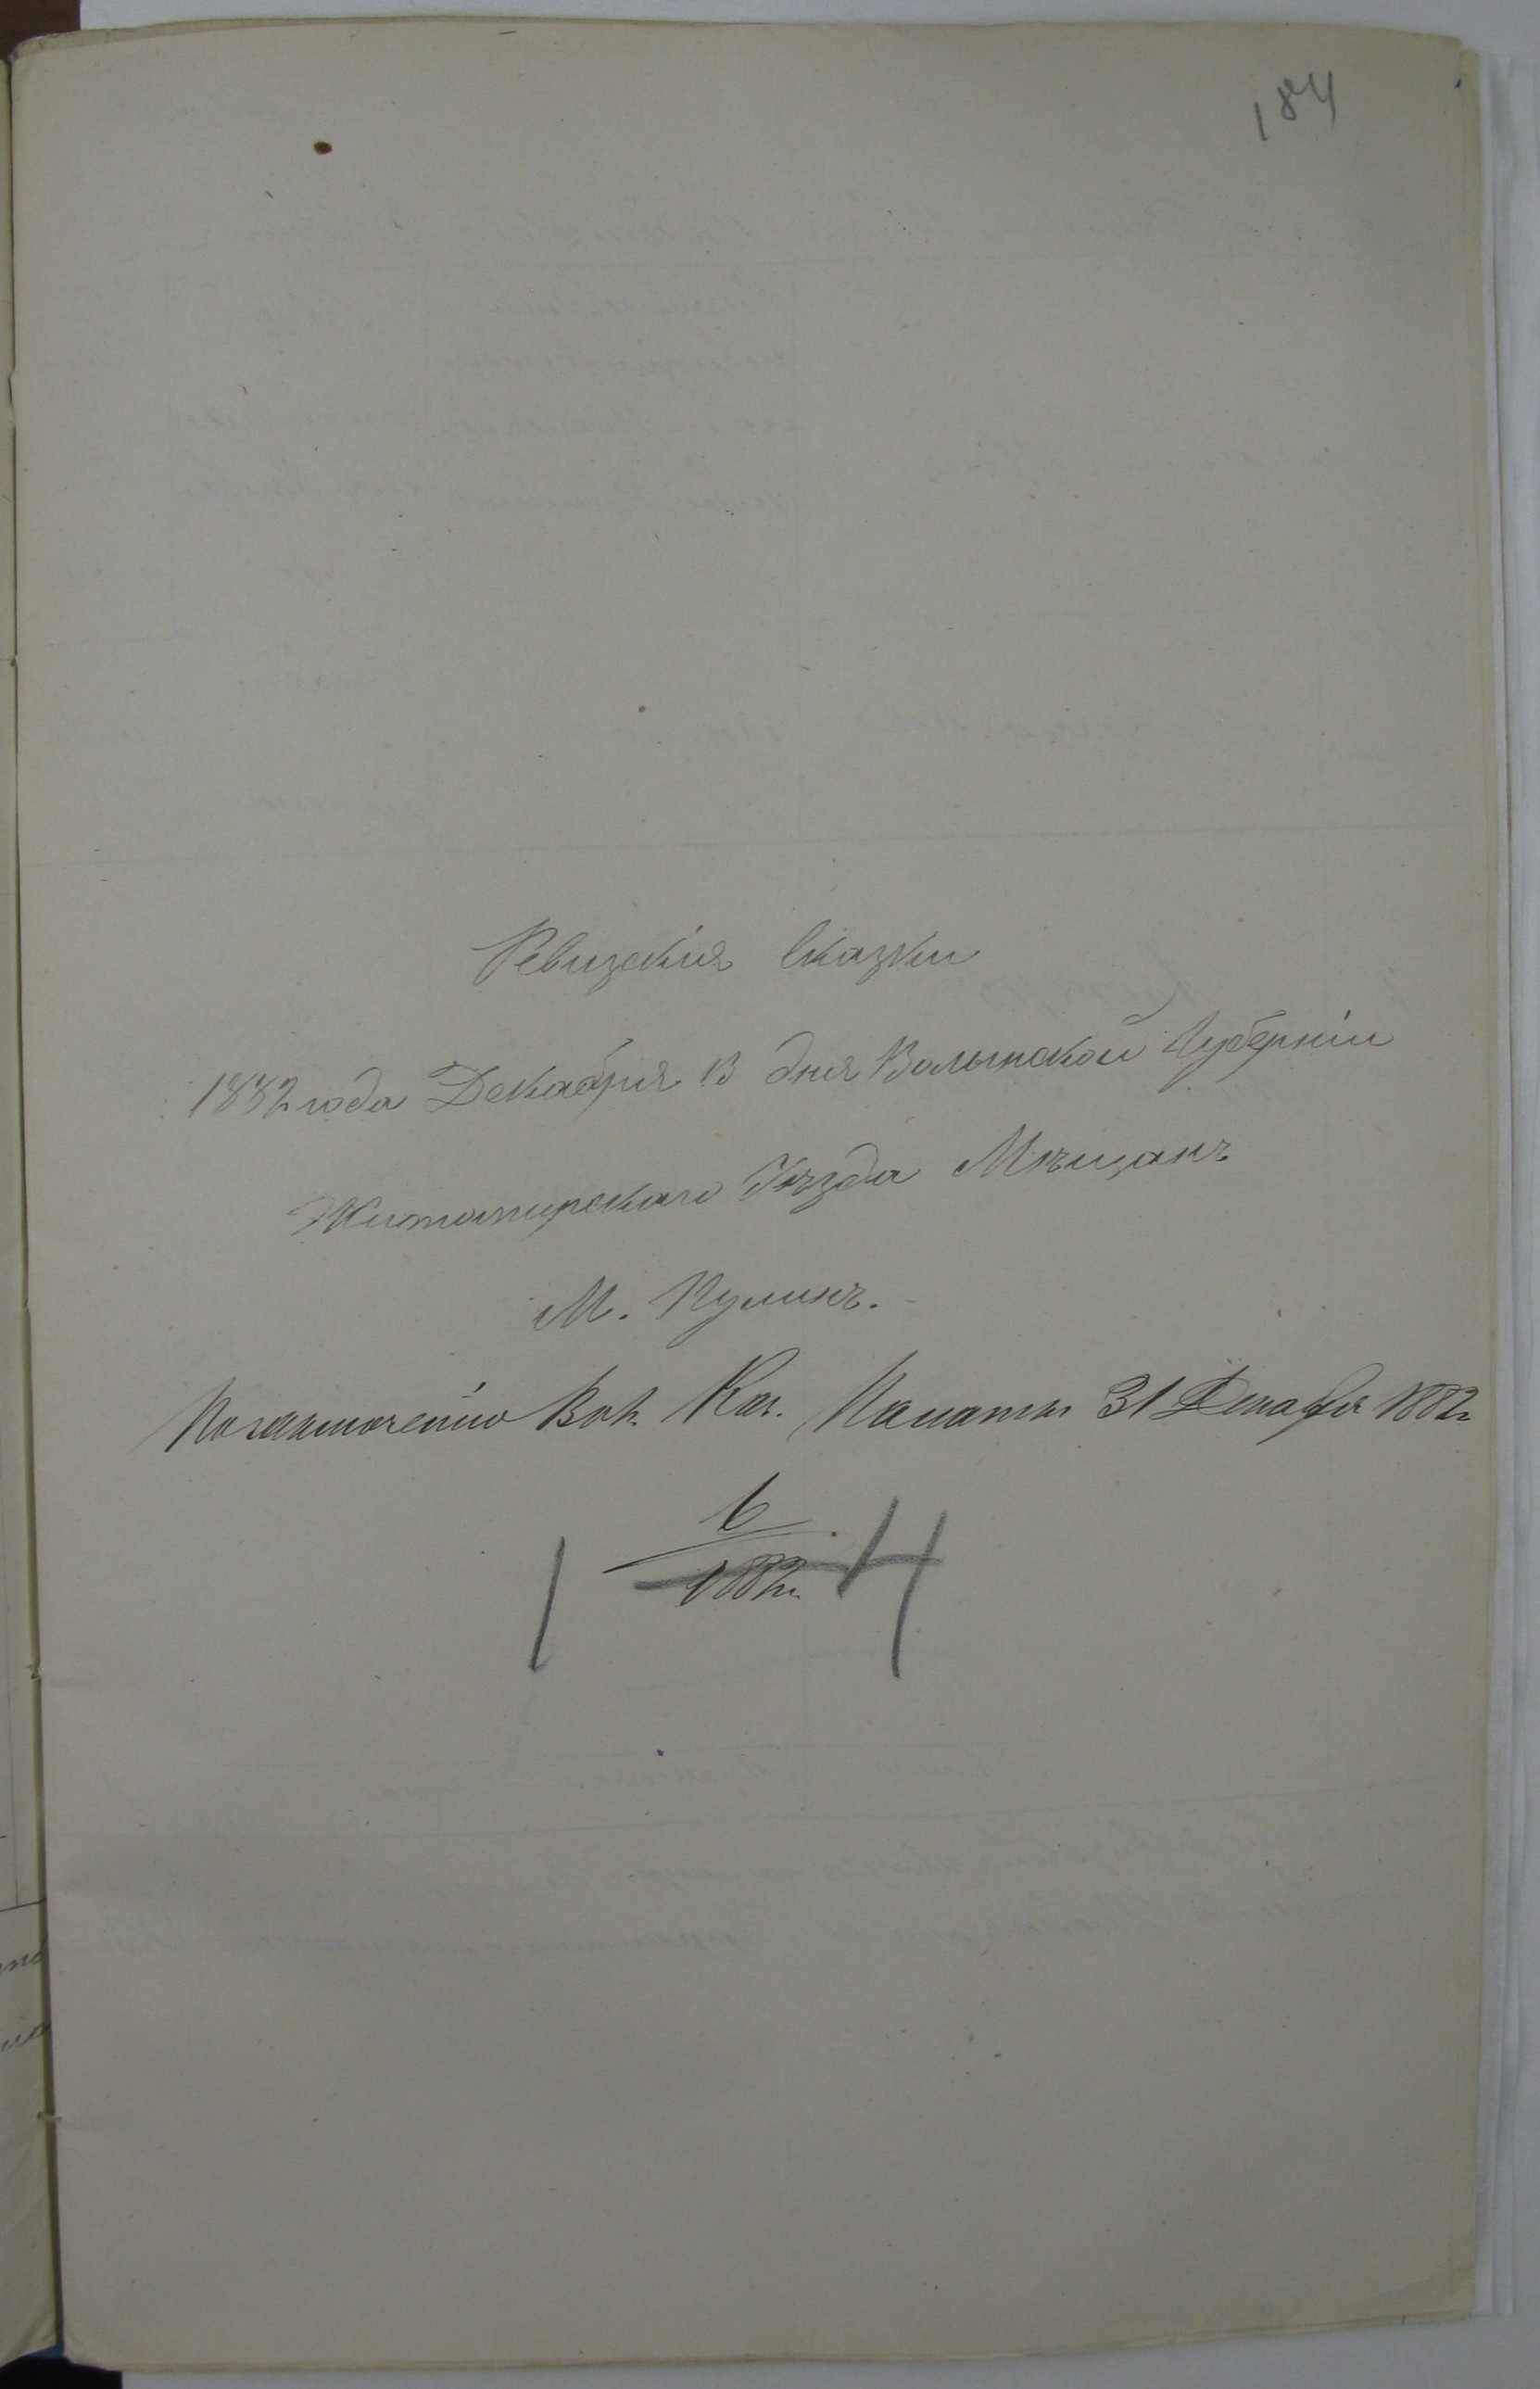 184
Ревизскія Сказки
1882 года Декабря 13 дня Волынской Губерніи
Житомирскаго Уѣзда Мѣщанъ
М. Пулинъ.
По заключенію Вол. Каз. Палаты 31 Декабря 1882 г.
6
1882 г.
1 4